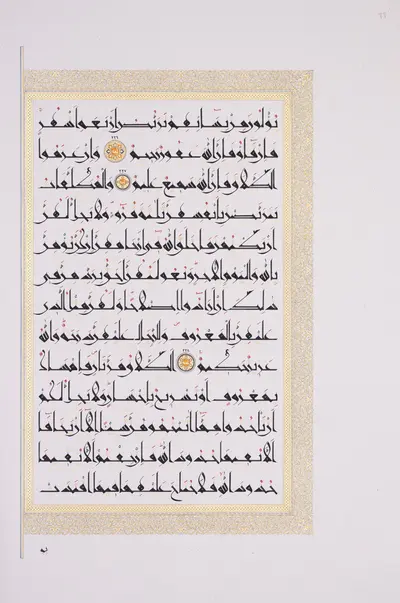 يؤلون من نسائهم تربص أربعة أشهر
فإن فاءو فإن الله غفور رحيم ۝ وإن عزموا
الطلاق فإن الله سميع عليم ۝ والمطلقات
يتربصن بأنفسهن ثلاثة قروء ولا يحل لهن
أن يكتمن ما خلق الله في أرحامهن إن كن يؤمن
بالله واليوم الآخر وبعولتهن أحق بردهن في
ذلك إن أرادوا إصلاحا ولهن مثل الذي
عليهن بالمعروف وللرجال عليهن درجة والله
عزيز حكيم ۝ الطلاق مرتان فإمساك
بمعروف أو تسريح بإحسان ولا يحل لكم
أن تأخذوا مما آتيتموهن شيئا إلا أن يخافا
ألا يقيما حدود الله فإن خفتم ألا يقيما
حدود الله فلا جناح عليهما فيما افتدت
به